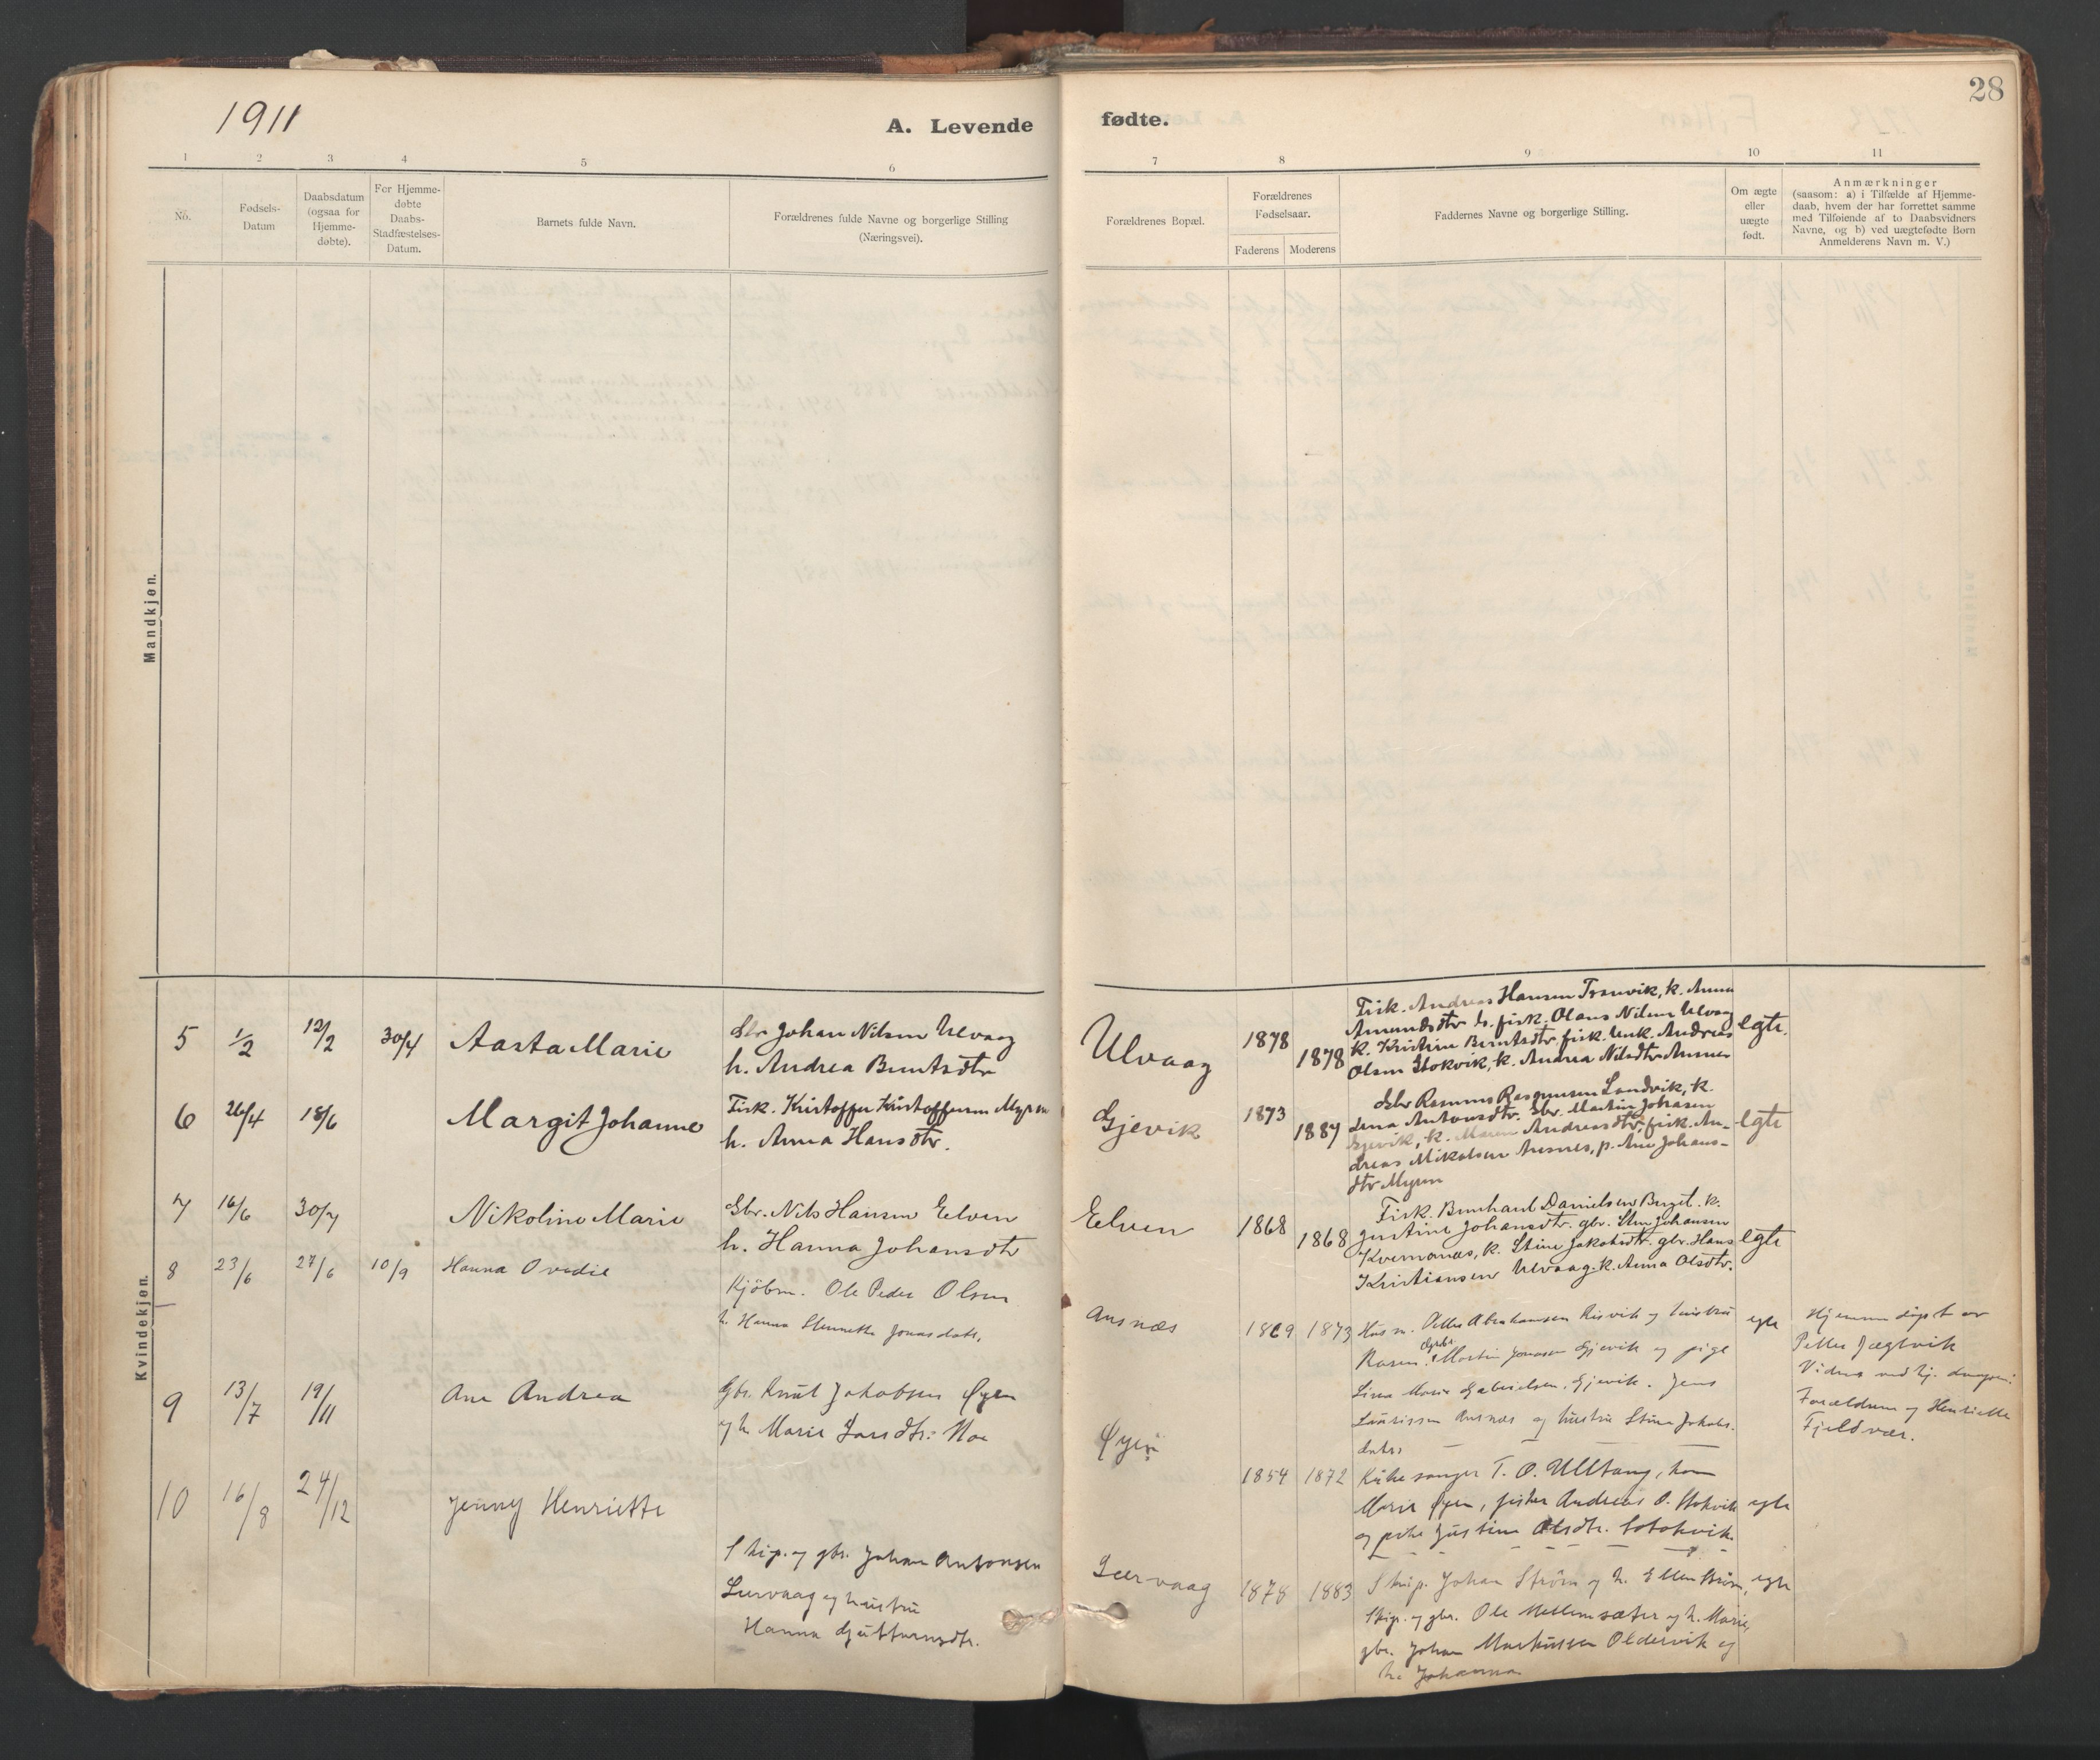 1911
A. Levende fødte.
28
1 2 3 4 5 6 7 8 9 10 11
No.
Fødsels-
Datum
Daabsdatum
(ogsaa for
Hjemme-
døbte).
For Hjemme-
døbte
Daabs-
Stadfæstelses-
Datum.
Barnets fulde Navn.
Forældrenes fulde Navne og borgerlige Stilling
(Næringsvei).
Forældrenes Bopæl.
Forældrenes
Fødselsaar.
Faderens
Moderens
Faddernes Navne og borgerlige Stilling.
Om ægte
eller
uægte
født.
Anmærkninger
(saasom: a) i Tilfælde af Hjemme-
daab, hvem der har forrettet samme
med Tilføiende af to Daabsvidners
Navne, og b) ved uægtefødte Børn
Anmelderens Navn m. V.)
Mandkjøn.
Kvindekjøn.
5 1/2 12/2 30/4 Aasta Marie
Gbr Johan Nilsen Ulvaag
h. Andrea Berntsdtr
Ulvaag
1878 1878
Fisk. Andreas Hansen Tranvik, k. Anna
Amundsdtr h. fisk. Olaus Nilsen Ulvaag
k. Kristine Berntsdtr fisk. Unk. Andreas
Olsen Stokvik, k. Andrea Nilsdtr Ansnes
egte.
6 26/4 18/6 Margit Johanne
Fisk. Kristoffer Kristoffersen Myren
h. Anna Hansdtr.
Gjevik
1873 1887
Gbr Rasmus Rasmussen Sandvik, k.
Lena Antonsdtr. Gbr. Martin Johnsen
Gjevik, k. Maren Andreasdtr, fisk. An-
dreas Mikalsen Ansnes, p. Ane Johans-
dtr Myren
egte
7 16/6 30/7 Nikoline Marie
Gbr. Nils Hansen Eelven
h. Hanna Johansdtr
Eelven
1868 1868
Fisk. Bernhard Danielsen Berget. k.
Justine Johansdtr. gbr. Sten Johansen
Kvernanes, k. Stine Jakobsdtr. gbr. Hans
Kristiansen Ulvaag. k. Anna Olsdtr.
egte
8 23/6 27/6 10/9 Hanna Ovedie
Kjöbm. Ole Peder Olsen
h. Hanna Jonasdatr.
Ansnæs
1869 1873
Husm. Petter Abrahamsen Risvik og hustru
Martin Jonasen Gjevik og pige
Lina Marie Gabrielsen, Gjevik. Jens
Lauritssen Ansnæs og hustru Stine Jakobs-
datr
egte
Hjemme döpt av
Petter Jægtvik
Vidner ved hj. daapen:
Forældrene og Henriette
Fjeldvær.
9 13/7 19/11 Ane Andrea
Gbr. Knut Jakobsen Øyen
og h. Marie Larsdtr.
Øyen
1854 1872
Kirkesanger T. O. Ulltang, kone
Marie Øyen, fisker Andreas O. Stokvik
og pike Justine Olsdtr. Stokvik
egte
10 16/8 24/12 Jenny Henriette
Skip. og gbr. Johan Antonsen
Leervaag og hustru
Hanna Guttormsdtr.
Leervaag
1878 1883
Skip. Johan Ström og h. Ellen Ström,
Skip. og gbr. Ole Mellemsæter og h. Marie,
gbr. Johan Markussen Oldervik og
h. Johanna
egte